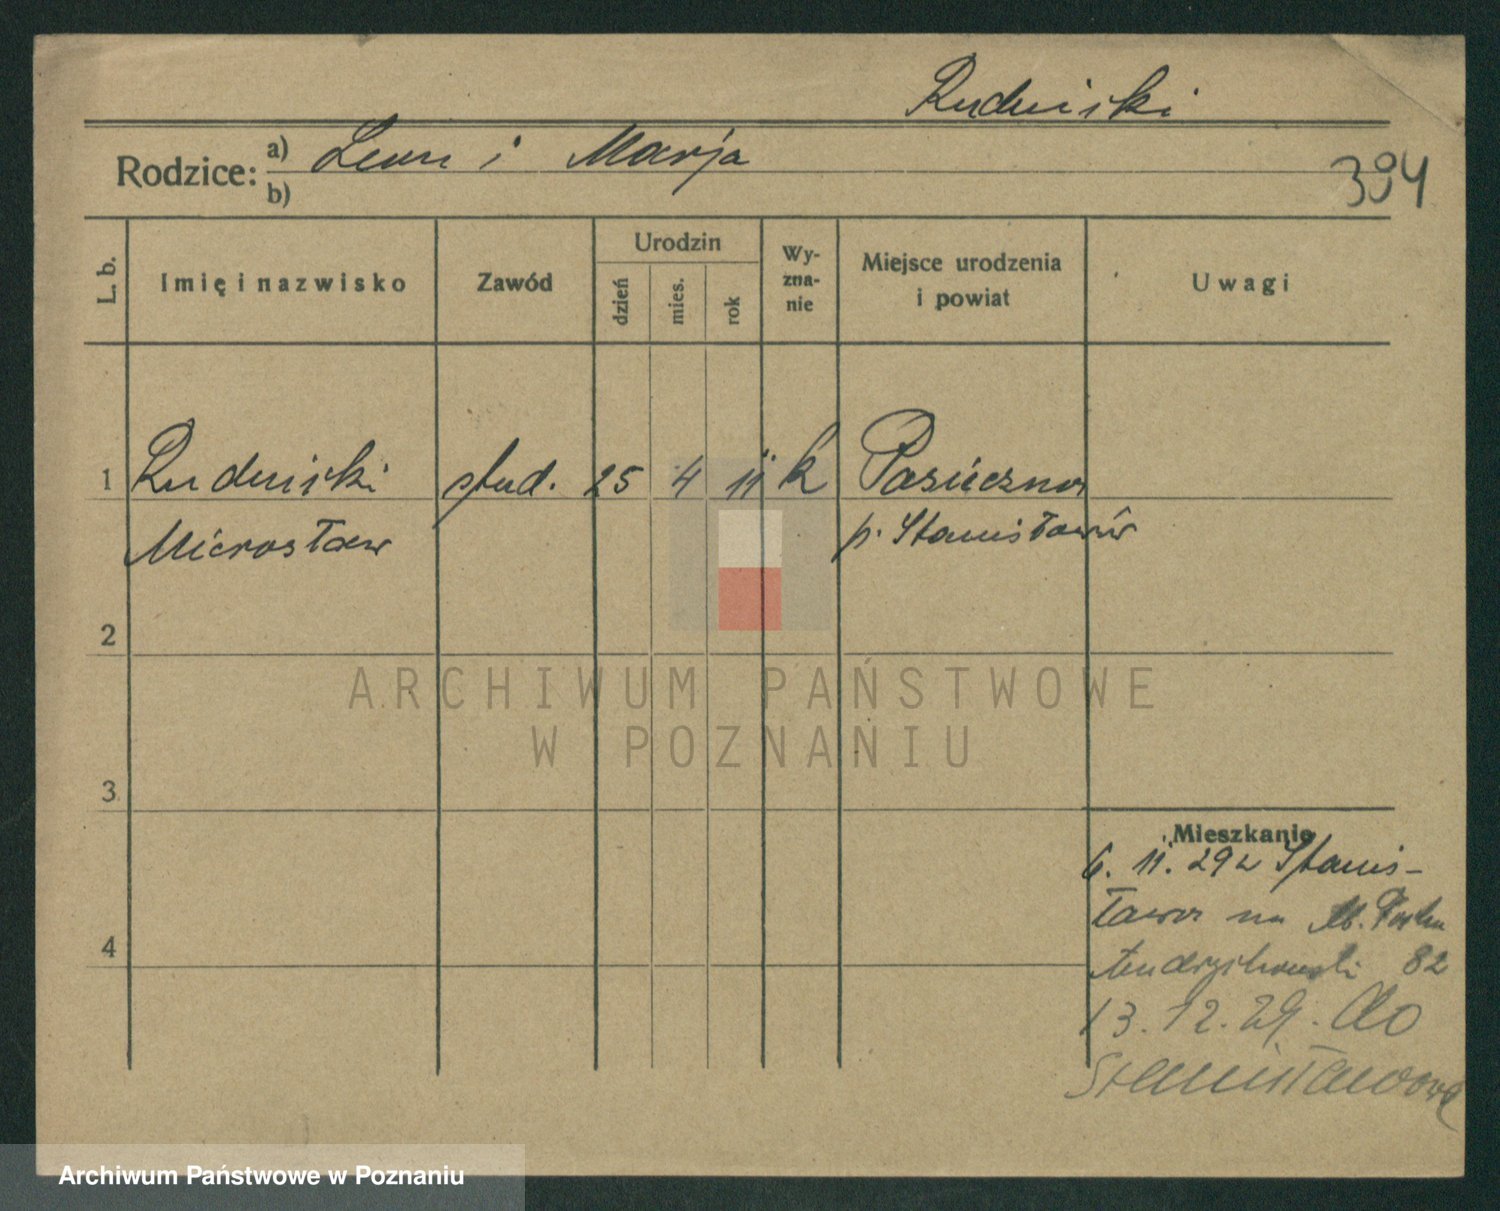 Rudnicki
Rodzice: a) Leon i Marja
b)
394
L. b. Imię i nazwisko Zawód Urodzin dzień mies. rok Wy-zna-nie Miejsce urodzenia i powiat Uwagi
1 Rudnicki stud. 25 4 11 k Pasieczna
Mierosław p. Stanisławów
2
ARCHIWUM PAŃSTWOWE
W POZNANIU
3
Mieszkanie
6. 11. 29 z Stanis-
ławowa na
4
82
13. 12. 29. do
Stanisławowa
Archiwum Państwowe w Poznaniu